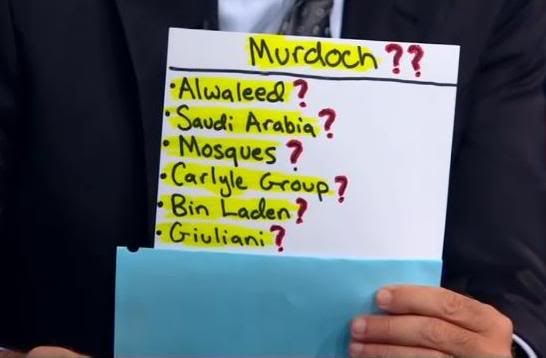 Murdoch ??
• Alwaleed ?
• Saudi Arabia ?
• Mosques ?
• Carlyle Group ?
• Bin Laden ?
• Giuliani ?